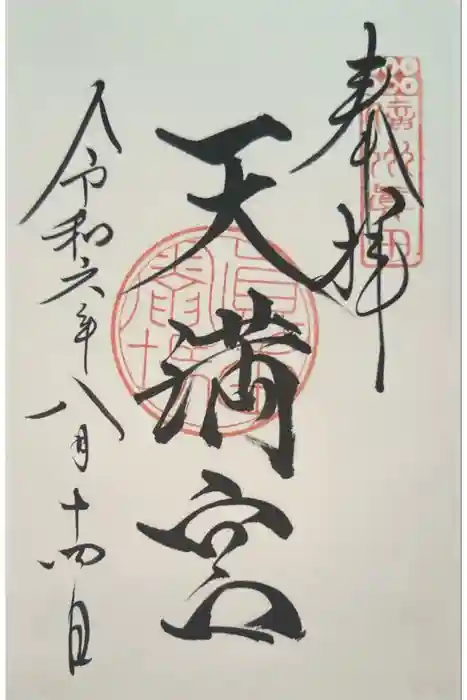 奉拝
天満宮
令和六年八月十四日